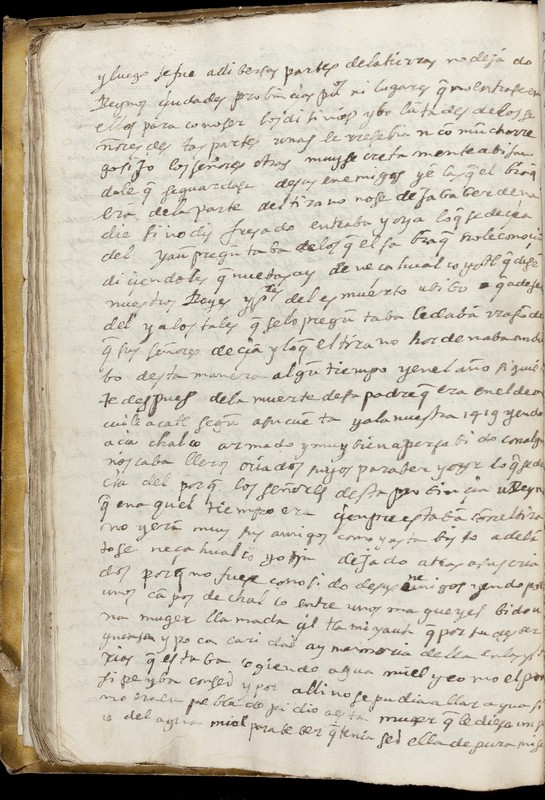 y luego se fue a dibersas partes de la tierras no dejādo
Reynos ciudades probincias pu^os ni lugares q̄ no entrase en
ellos para conoser los disinios y boluntades de los se
ñores destas partes unas le resebian cō mucho rre
gosijo los señores otras muy secretamente abisan
dole q̄ se guardase de sus enemigos y e los q̄ el
era de la parte del tirano no se dejaba ber de na
die si no disfrasado entraba y oya lo q̄ se decia
del y aū preguntaba de los q̄ el sabia q̄ no le conocia
diciendoles q̄ nuebas ay de necahualcoyotl q̄ disē
nuestros Reyes del es muerto u bibo q̄
del y a los tales q̄ se lo preguntaba le dabā rrasō de
q̄ sus señores decia y lo q̄ el tirano hordenaba andu
bo desta manera algū tiempo y en el año siguiē
te despues de la muerte de su padre q̄ era en el de
segū su cueta y a la nuestra 1419 yendo
acia chalco armado y muy bien apersebido con algu
nos caballeros criados suyos para ber y oyr lo q̄ se de
cia del porq̄ los señores desta probincia u Reyno
q̄ en aquel tiempo era siempre estaba sobre el tira
no y erā muy sus amigos como ya esta bisto adelā
tose necahualcoyotzin dejādo atras a sus cria
dos porq̄ no fuese conosido de sus enemigos yendo por
unos cāpos de chalco entre unos magueyes bido u
na muger llamada tziltamiyauh q̄ por su desber
guensa y poca caridad ay memoria della en las ysto
rias q̄ estaba cogiendo agua miel y como el prin
sipe yba con sed y por alli no se pudia allar agua si
no era en poblado pidio a esta muger q̄ le diese un po
co del agua miel para beber q̄ tenia sed ella de pura